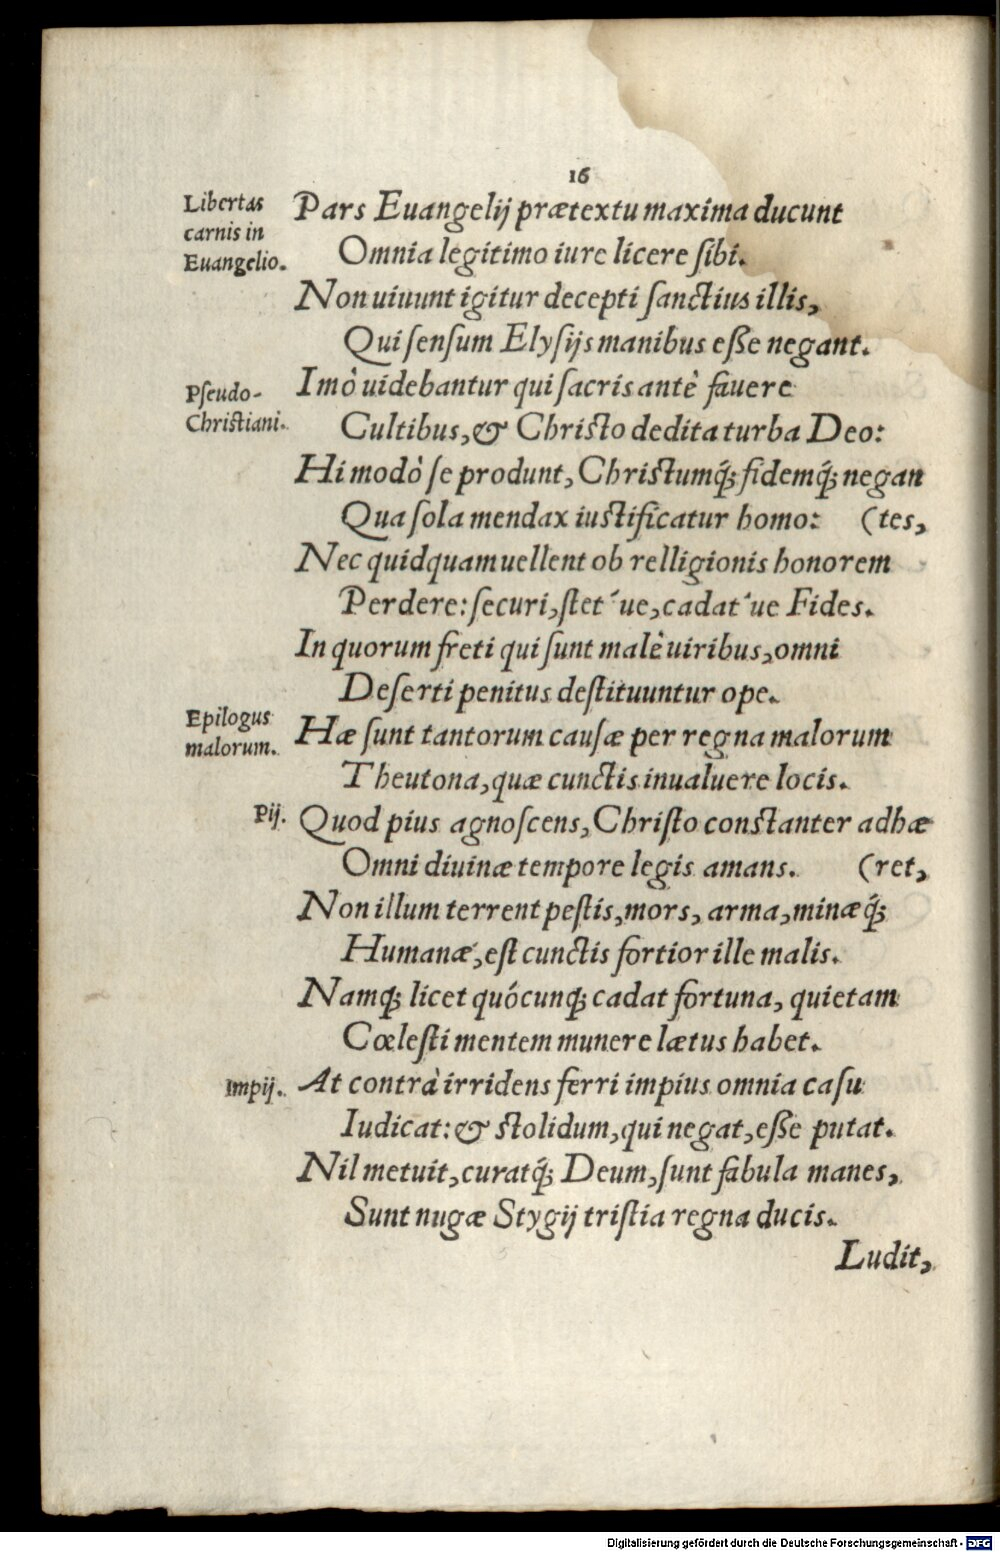 16
Libertas
carnis in
Euangelio.
Pars Euangelij prætextu maxima ducunt
Omnia legitimo iure licere ſibi.
Non uiuunt igitur decepti ſanctius illis,
Qui ſenſum Elyſijs manibus eſſe negant.
Pſeudo-
Chriſtiani.
Imò uidebantur qui ſacris antè fauere
Cultibus, & Chriſto dedita turba Deo:
Hi modò ſe produnt, Chriſtumq́; fidemq́; negan
Qua ſola mendax iuſtificatur homo: (tes,
Nec quidquam uellent ob relligionis honorem
Perdere: ſecuri, ſtet´ue, cadat´ue Fides.
In quorum freti qui ſunt malè uiribus, omni
Deſerti penitus deſtituuntur ope.
Epilogus
malorum.
Hæ ſunt tantorum cauſæ per regna malorum
Theutona, quæ cunctis inualuere locis.
Pij.
Quod pius agnoſcens, Chriſto conſtanter adhæ
Omni diuinæ tempore legis amans. (ret,
Non illum terrent peſtis, mors, arma, minæq́;
Humanæ, eſt cunctis fortior ille malis.
Namq; licet quócunq; cadat fortuna, quietam
Cœleſti mentem munere lætus habet.
Impij.
At contrà irridens ferri impius omnia caſu
Iudicat: & ſtolidum, qui negat, eſſe putat.
Nil metuit, curatq́; Deum, ſunt fabula manes,
Sunt nugæ Stygij triſtia regna ducis.
Ludit,
Digitalisierung gefördert durch die Deutsche Forschungsgemeinschaft - DFG